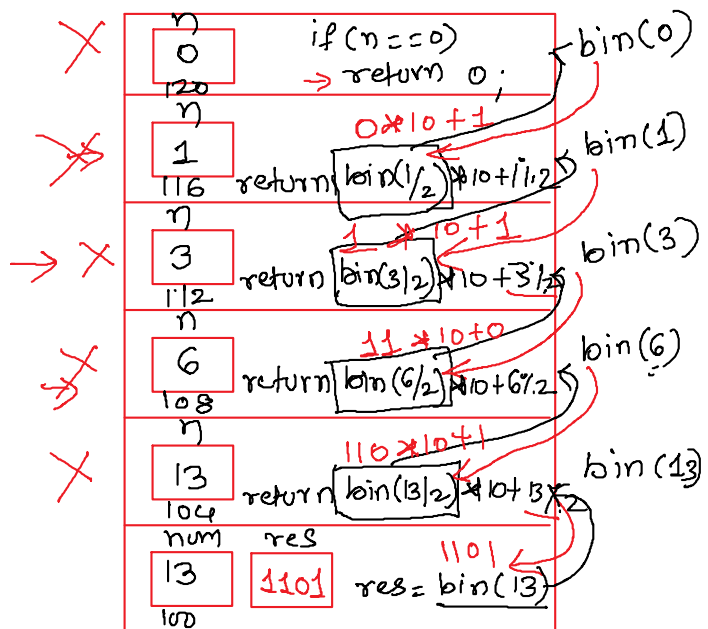 n
0
120
if (n==0)
→ return 0;
bin(0)
n
1
116
0*10+1
return bin(1/2)*10+1%2
bin(1)
n
3
112
1 * 10+1
return bin(3/2)*10+3%2
bin(3)
n
6
108
11*10+0
return bin(6/2)*10+6%2
bin(6)
n
13
104
110*10+1
return bin(13/2)*10+13%2
bin(13)
num
13
100
res
1101
1101
res=bin(13)